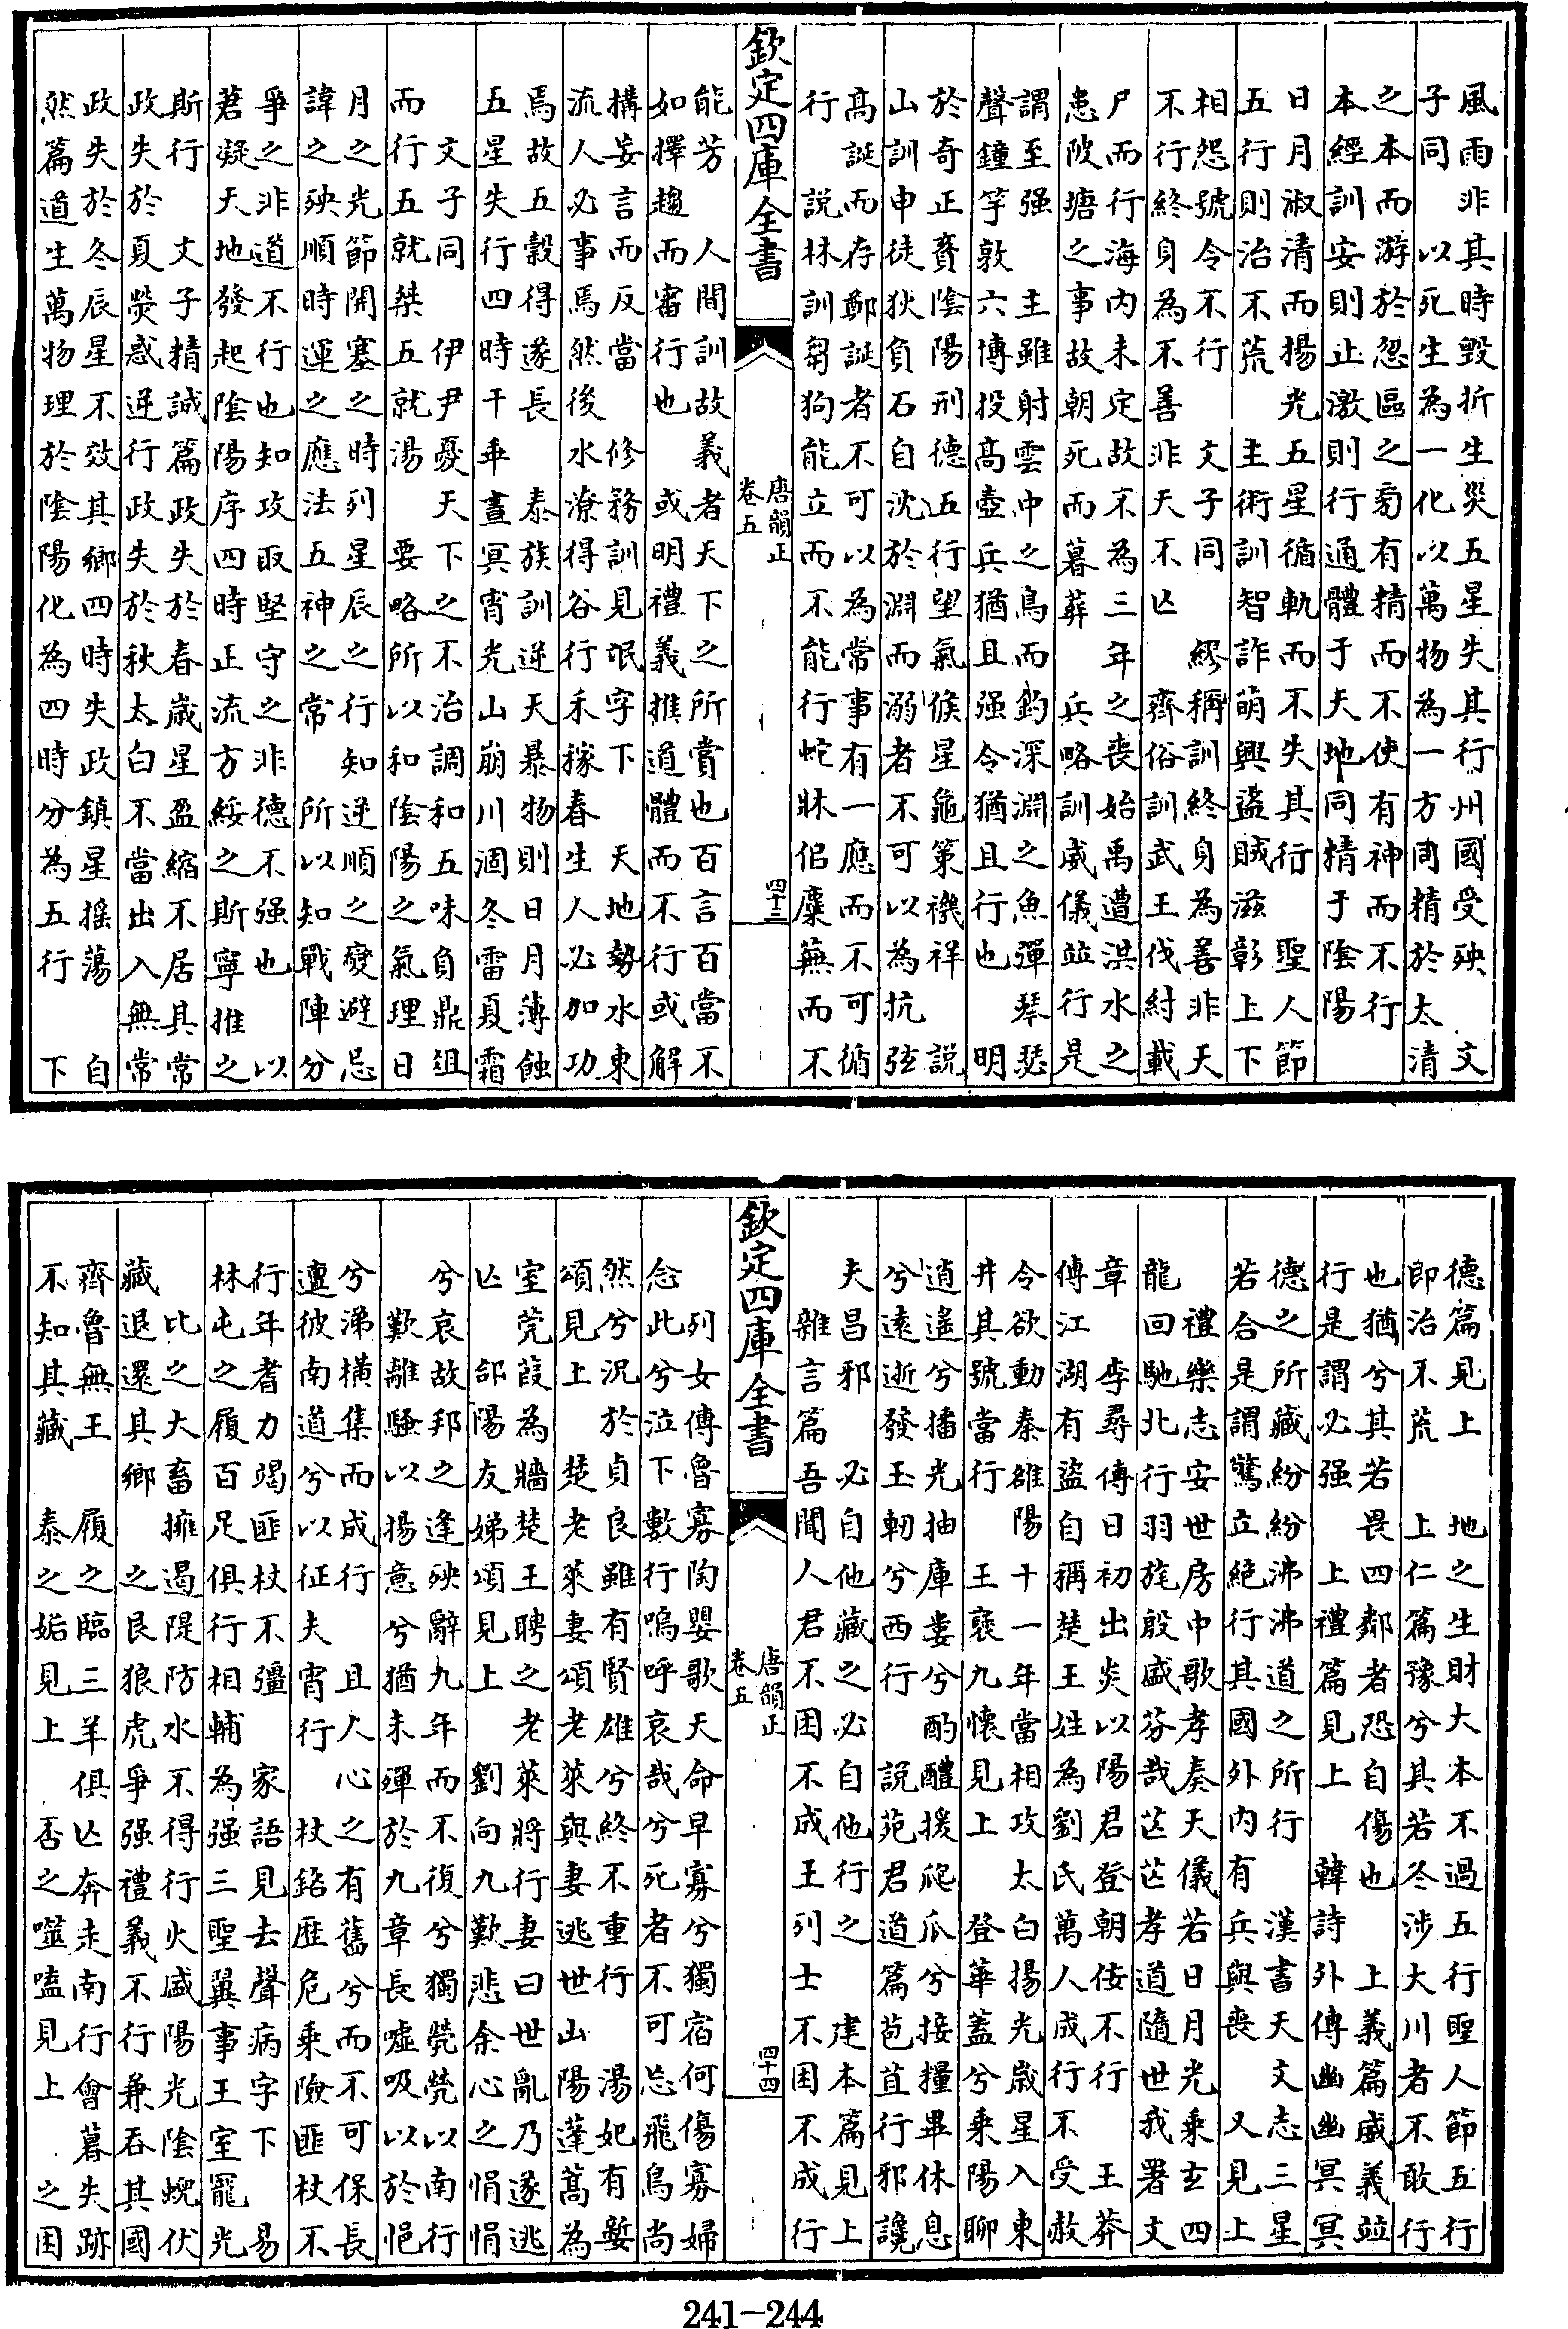 風雨非其時毀折生災五星失其行州國受殃　文
子同　以死生為一化以萬物為一方同精於太清
之本而游於忽區之旁有精而不使有神而不行
本經訓安則止激則行通體于天地同精于陰陽
日月淑清而揚光五星循軌而不失其行　聖人節
五行則治不荒　主術訓智詐萌興盜賊滋彰上下
相怨號令不行　文子同　繆稱訓終身為善非天
不行終身為不善非天不亡　齊俗訓武王伐紂載
尸而行海内未定故不為三年之喪始禹遭洪水之
患陂塘之事故朝死而暮葬　兵略訓威儀竝行是
謂至强　主雖射雲中之鳥而釣深淵之魚彈琴瑟
聲鐘竽敦六博投高壺兵猶且强令猶且行也　明
於奇正賚陰陽刑德五行望氣候星龜策禨祥　説
山訓申徒狄負石自沈於淵而溺者不可以為抗弦
高誕而存鄭誕者不可以為常事有一應而不可循
行　説林訓芻狗能立而不能行蛇牀佀麋蕪而不
欽定四庫全書
唐韻正
卷五
四十三
能芳　人間訓故義者天下之所賞也百言百當不
如擇趨而審行也　或明禮義推道體而不行或解
搆妄言而反當　修務訓見氓字下　天地勢水東
流人必事焉然後水潦得谷行禾稼春生人必加功
焉故五穀得遂長　泰族訓逆天暴物則日月薄蝕
五星失行四時干乖晝冥宵光山崩川涸冬雷夏霜
文子同　伊尹憂天下之不治調和五味負鼎俎
而行五就桀五就湯　要略所以和陰陽之氣理日
月之光節開塞之時列星辰之行知逆順之變避忌
諱之殃順時運之應法五神之常　所以知戰陣分
爭之非道不行也知攻取堅守之非德不强也　以
著凝天地發起陰陽序四時正流方綏之斯寧推之
斯行　文子精誠篇政失於春歲星盈縮不居其常
政失於夏熒惑逆行政失於秋太白不當出入無常
政失於冬辰星不效其鄉四時失政鎮星搖蕩　自
然篇道生萬物理於陰陽化為四時分為五行　下
德篇見上　地之生財大本不過五行聖人節五行
即治不荒　上仁篇豫兮其若冬涉大川者不敢行
也猶兮其若畏四鄰者恐自傷也　上義篇威義竝
行是謂必强　上禮篇見上　韓詩外傳幽幽冥冥
德之所藏紛紛沸沸道之所行　漢書天文志三星
若合是謂驚立絶行其國外内有兵與喪　又見上
禮樂志安世房中歌孝奏天儀若日月光乘玄四
龍回馳北行羽旄殷盛芬哉芒芒孝道隨世我署文
章　李尋傳日初出炎以陽君登朝佞不行　王莽
傳江湖有盜自稱楚王姓為劉氏萬人成行不受赦
令欲動秦雒陽十一年當相攻太白揚光歲星入東
井其號當行　王褒九懷見上　登華蓋兮乘陽聊
逍遙兮播光抽庫婁兮酌醴援爮瓜兮接糧畢休息
兮遠逝發玉軔兮西行　説苑君道篇苞苴行邪讒
夫昌邪　必自他藏之必自他行之　建本篇見上
雜言篇吾聞人君不困不成王列士不困不成行
欽定四庫全書
唐韻正
卷五
四十四
列女傳魯寡陶嬰歌天命早寡兮獨宿何傷寡婦
念此兮泣下數行嗚呼哀哉兮死者不可忘飛鳥尚
然兮況於貞良雖有賢雄兮終不重行　湯妃有㜪
頌見上　楚老萊妻頌老萊與妻逃世山陽蓬蒿為
室莞葭為牆楚王聘之老萊將行妻曰世亂乃遂逃
亡　郃陽友娣頌見上　劉向九歎悲余心之悁悁
兮哀故邦之逢殃辭九年而不復兮獨煢煢以南行
歎離騷以揚意兮猶未殫於九章長噓吸以於悒
兮涕橫集而成行　且人心之有舊兮而不可保長
邅彼南道兮以征夫宵行　杖銘歷危乘險匪杖不
行年耆力竭匪杖不彊　家語見去聲病字下　易
林屯之履百足俱行相輔為强三聖翼事王室寵光
比之大畜擁遏隄防水不得行火盛陽光陰蜺伏
藏退還其鄉　之艮狼虎爭强禮義不行兼吞其國
齊魯無王　履之臨三羊俱亡奔走南行會暮失跡
不知其藏　泰之姤見上　否之噬嗑見上　之困
241-244